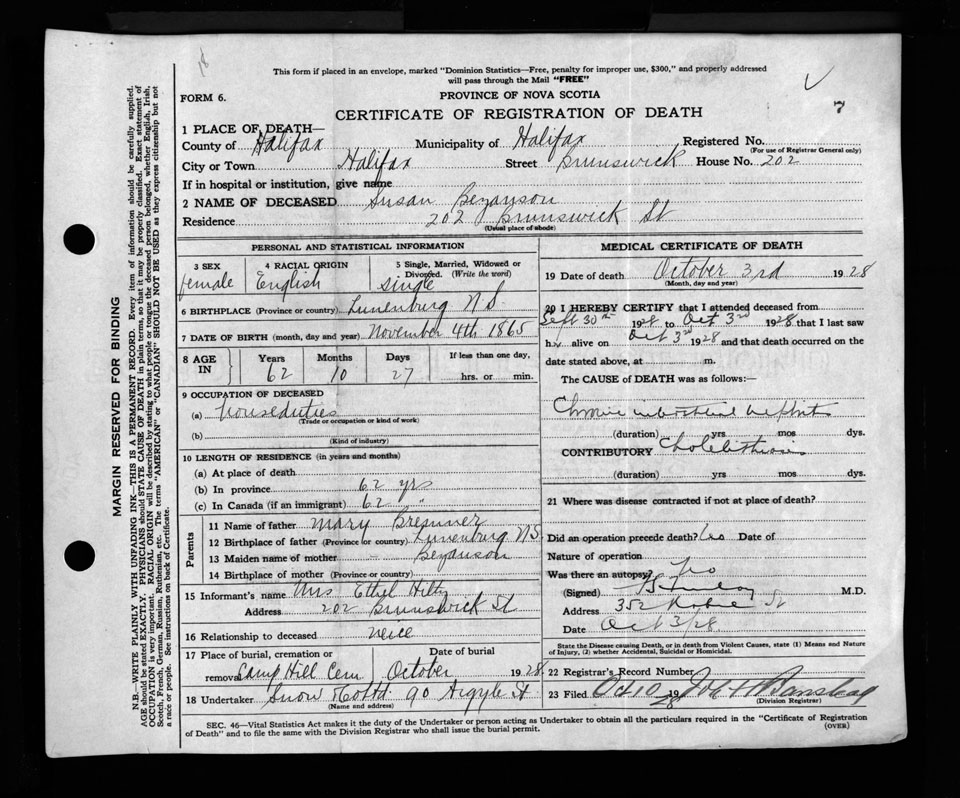 This form if placed in an envelope, marked "Dominion Statistics—Free, penalty for improper use, $300," and properly addressed
will pass through the Mail "FREE"
FORM 6.
PROVINCE OF NOVA SCOTIA
CERTIFICATE OF REGISTRATION OF DEATH
1 PLACE OF DEATH—
County of Halifax Municipality of Halifax Registered No.
(For use of Registrar General only)
City or Town Halifax Street Brunswick House No. 202
If in hospital or institution, give name
2 NAME OF DECEASED Susan Bezanson
Residence 202 Brunswick St
(Usual place of abode)
PERSONAL AND STATISTICAL INFORMATION
3 SEX female
4 RACIAL ORIGIN English
5 Single, Married, Widowed or Divorced. (Write the word) single
6 BIRTHPLACE (Province or country) Lunenburg N S
7 DATE OF BIRTH (month, day and year) November 4th 1865
8 AGE IN Years 62 Months 10 Days 27 If less than one day, hrs. or min.
9 OCCUPATION OF DECEASED
(a) houseduties
(Trade or occupation or kind of work)
(b)
(Kind of industry)
10 LENGTH OF RESIDENCE (in years and months)
(a) At place of death
(b) In province 62 yrs
(c) In Canada (if an immigrant) 62 "
Parents
11 Name of father Mary Bremner
12 Birthplace of father (Province or country) Lunenburg N S
13 Maiden name of mother Bezanson
14 Birthplace of mother (Province or country)
15 Informant's name Mrs Ethel Hiltz
Address 202 Brunswick St
16 Relationship to deceased neice
17 Place of burial, cremation or removal Camp Hill Cem Date of burial October 1928
18 Undertaker Snow Co Ltd 90 Argyle St
(Name and address)
MEDICAL CERTIFICATE OF DEATH
19 Date of death October 3rd 1928
(Month, day and year)
20 I HEREBY CERTIFY that I attended deceased from
Sept 30th 1928 to Oct 3rd 1928 that I last saw
h alive on Oct 3rd 1928 and that death occurred on the
date stated above, at m.
The CAUSE of DEATH was as follows:—
Chronic interstitial nephritis
(duration) yrs mos dys.
CONTRIBUTORY Cholelithiasis
(duration) yrs mos dys.
21 Where was disease contracted if not at place of death?
Did an operation precede death? No Date of
Nature of operation
Was there an autopsy? No
(Signed) M.D.
Address 352 Robie St
Date Oct 3/28
State the Disease causing Death, or in death from Violent Causes, state (1) Means and Nature
of Injury, (2) whether Accidental, Suicidal or Homicidal.
22 Registrar's Record Number
23 Filed Oct 10 1928
(Division Registrar)
SEC. 46—Vital Statistics Act makes it the duty of the Undertaker or person acting as Undertaker to obtain all the particulars required in the "Certificate of Registration
of Death" and to file the same with the Division Registrar who shall issue the burial permit.
(OVER)
MARGIN RESERVED FOR BINDING
N.B.—WRITE PLAINLY WITH UNFADING INK—THIS IS A PERMANENT RECORD. Every item of information should be carefully supplied.
AGE should be stated EXACTLY. PHYSICIANS should STATE CAUSE OF DEATH in plain terms, so that it may be properly classified. Exact statement of
OCCUPATION is very important. RACIAL ORIGIN will be described by stating to what people or tongue the deceased person belonged, whether English, Irish,
Scotch, French, German, Russian, Ruthenian, etc. The terms "AMERICAN" or "CANADIAN" SHOULD NOT BE USED as they express citizenship but not
a race or people. See instructions on back of Certificate.